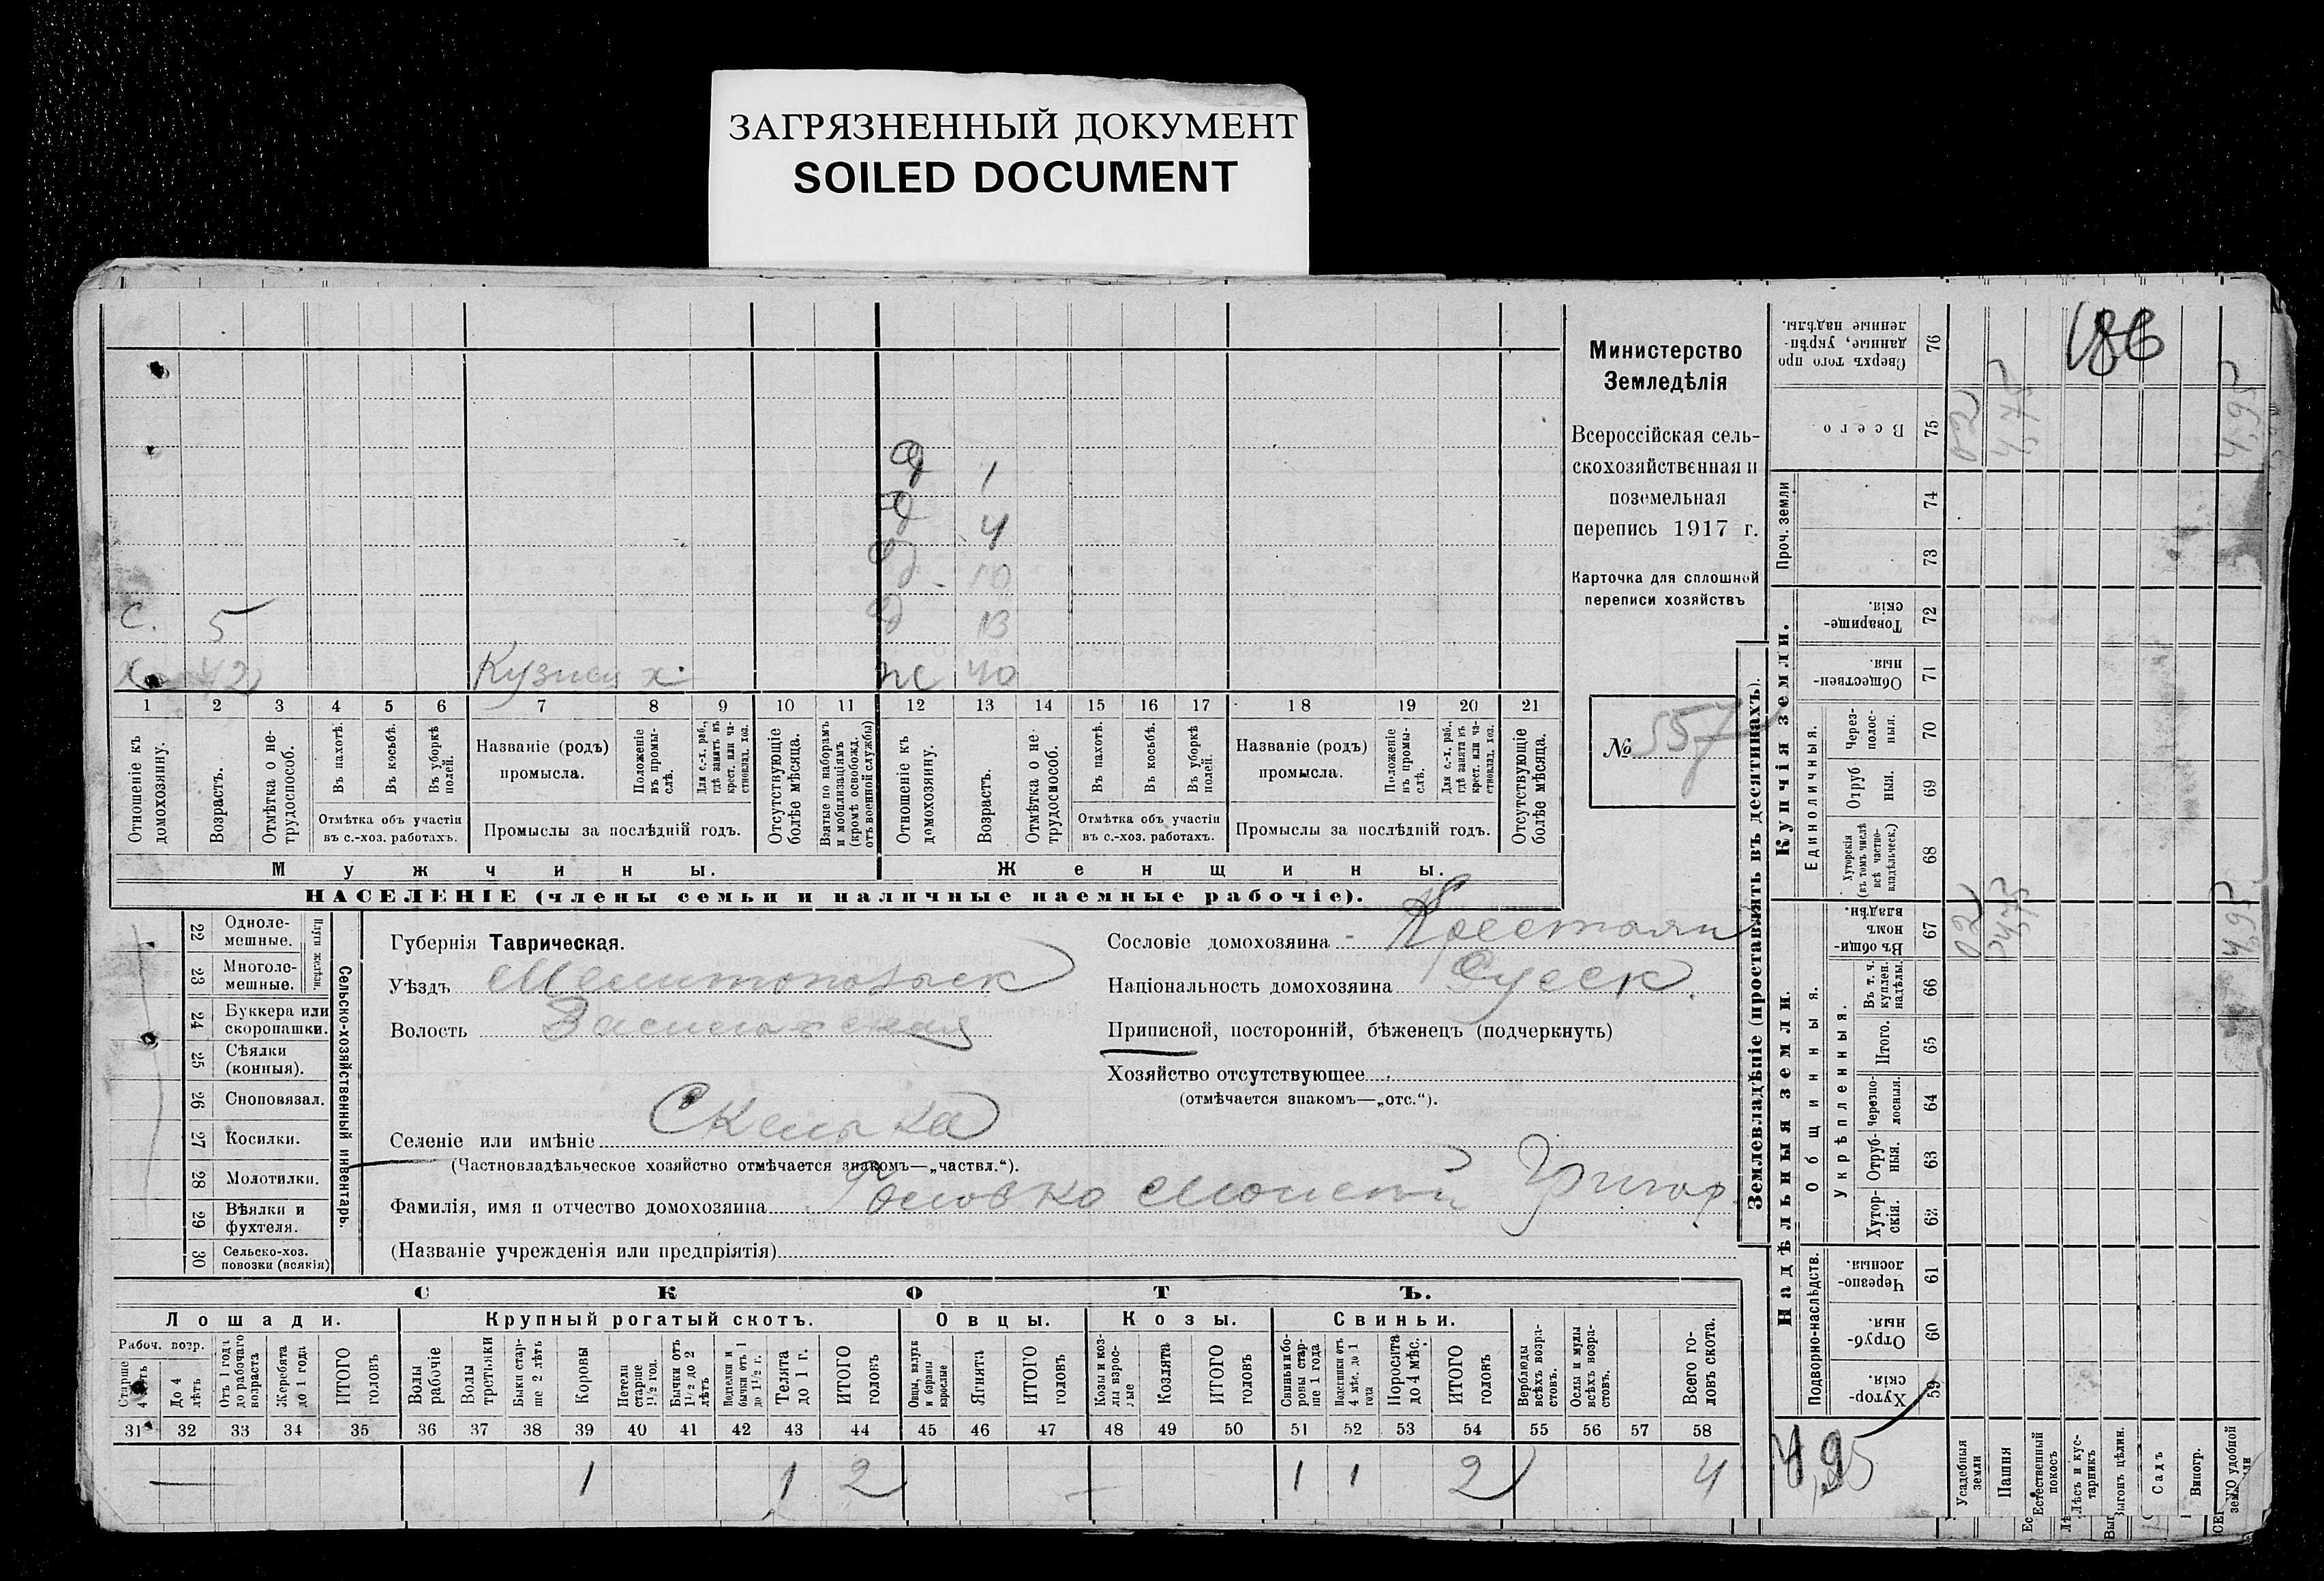 ЗАГРЯЗНЕННЫЙ ДОКУМЕНТ
SOILED DOCUMENT
186
Министерство
Земледѣлія
Всероссійская сель-
скохозяйственная и
поземельная
перепись 1917 г.
Карточка для сплошной
переписи хозяйствъ
№ 557
д 1
д 4
д 10
с. 5 д 13
х 42 Кузнец х. ж 40
1 2 3 4 5 6 7 8 9 10 11 12 13 14 15 16 17 18 19 20 21
Отношеніе къ домохозяину.
Возрастъ.
Отмѣтка о не-трудоспособ.
Въ пахотѣ.
Въ косьбѣ.
Въ уборкѣ полей.
Отмѣтка объ участіи въ с.-хоз. работахъ.
Названіе (родъ) промысла.
Положеніе въ промы-слѣ.
Для с.-х. раб., гдѣ занятъ въ крест. или ча-стновлад. хоз.
Промыслы за послѣдній годъ.
Отсутствующіе болѣе мѣсяца.
Взятые по наборамъ и мобилизаціямъ (кромѣ освобожд. отъ военной службы)
Отношеніе къ домохозяину.
Возрастъ.
Отмѣтка о не-трудоспособ.
Въ пахотѣ.
Въ косьбѣ.
Въ уборкѣ полей.
Отмѣтка объ участіи въ с.-хоз. работахъ.
Названіе (родъ) промысла.
Положеніе въ промы-слѣ.
Для с.-х. раб., гдѣ занята въ крест. или ча-стновлад. хоз.
Промыслы за послѣдній годъ.
Отсутствующіе болѣе мѣсяца.
Мужчины. Женщины.
НАСЕЛЕНІЕ (члены семьи и наличные наемные рабочіе).
22 Одноле-мешные.
23 Многоле-мешные.
Плуги желѣзн.
24 Буккера или скоропашки.
25 Сѣялки (конныя).
26 Сноповязал.
27 Косилки.
28 Молотилки.
29 Вѣялки и фухтеля.
30 Сельско-хоз. повозки (всякія)
Сельско-хозяйственный инвентарь.
Губернія Таврическая.
Уѣздъ Мелитопольск
Волость Васильевская
Селеніе или имѣніе Скелька
(Частновладѣльческое хозяйство отмѣчается знакомъ—„частвл.“).
Фамилія, имя и отчество домохозяина Головко Моисей Григор
(Названіе учрежденія или предпріятія)
Сословіе домохозяина - Крестьян
Національность домохозяина Русск.
Приписной, посторонній, бѣженецъ (подчеркнуть)
Хозяйство отсутствующее
(отмѣчается знакомъ—„отс.“).
СКОТЪ.
Лошади. Крупный рогатый скотъ. Овцы. Козы. Свиньи.
Рабоч. возр.
Старше 4 лѣтъ
До 4 лѣтъ
Отъ 1 года до рабочаго возраста
Жеребята до 1 года
ИТОГО головъ
Волы рабочіе
Волы третьяки
Быки стар-ше 2 лѣтъ
Коровы
Нетели старше 1½ год.
Бычки отъ 1½ до 2 лѣтъ
Подтелки и бычки отъ 1 до 1½ г.
Телята до 1 г.
ИТОГО головъ
Овцы, валухи и бараны взрослые
Ягнята
ИТОГО головъ
Козы и коз-лы взрос-лые
Козлята
ИТОГО головъ
Свиньи и бо-ровы стар-ше 1 года
Подсвинки отъ 4 мѣс. до 1 года
Поросята до 4 мѣс.
ИТОГО головъ
Верблюды всѣхъ возра-стовъ.
Ослы и мулы всѣхъ возра-стовъ.
Всего го-ловъ скота.
31 32 33 34 35 36 37 38 39 40 41 42 43 44 45 46 47 48 49 50 51 52 53 54 55 56 57 58
— 1 1 2 — 1 1 2 4
Землевладѣніе (проставлять въ десятинахъ).
Сверхъ того про данные, укрѣп-ленные надѣлы. 76
Всего. 75 02 4,75 4,95
Проч. земли 74 73
Купчія земли.
Товарище-скія. 72
Обществен-ныя. 71
Единоличныя.
Через-полос-ныя. 70
Отруб ныя. 69
Хуторскія (въ томъ числѣ всѣ частно-владѣльческ.) 68
Надѣльныя земли.
Общинныя.
Въ общи-номъ владѣн. 67 02 4,75 4,95
Укрѣпленныя.
Въ т. ч. куплен. надѣлы. 66
Итого. 65
Черезпо-лосныя. 64
Отруб-ныя. 63
Хутор-скія. 62
Подворно-наслѣдств.
Черезпо-лосныя. 61
Отруб-ныя. 60
Хутор-скія. 59
4,95
Усадебныя земли
Пашня
Естественный покосъ
Лѣсъ и кус-тарникъ
Выгонъ цѣлин.
Садъ
Виногр.
удобной